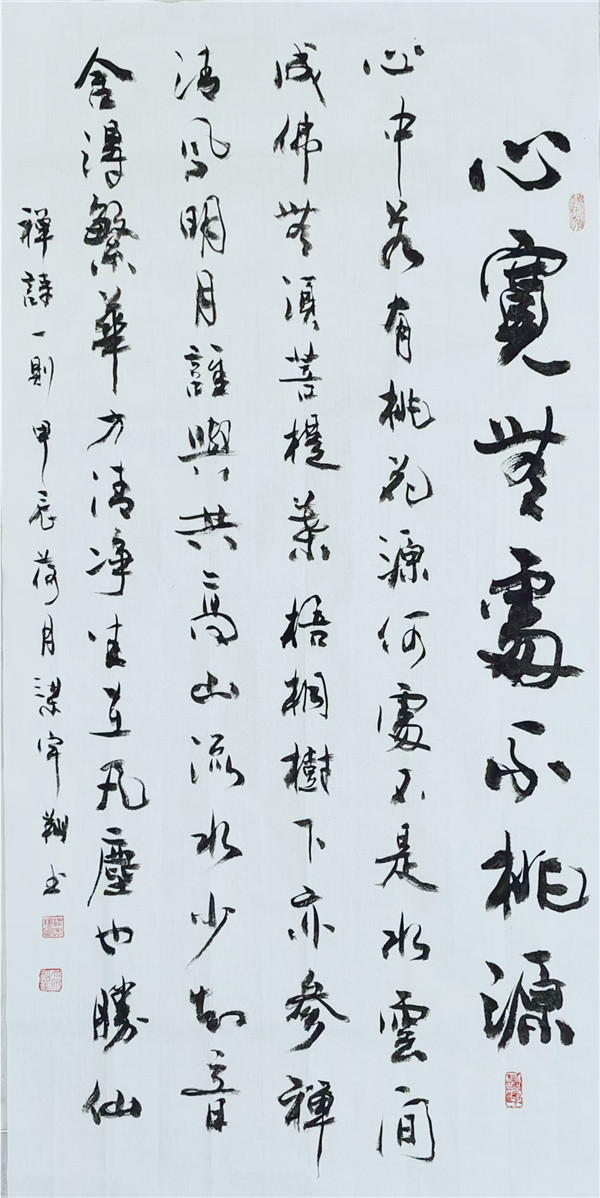 心寬無處不桃源
心中若有桃花源何處不是水雲間
成佛無須菩提葉梧桐樹下亦參禪
清風明月誰與共高山流水少知音
舍得繁華方清淨在凡塵也勝仙
禪詩一則甲辰荷月梁宇翔书